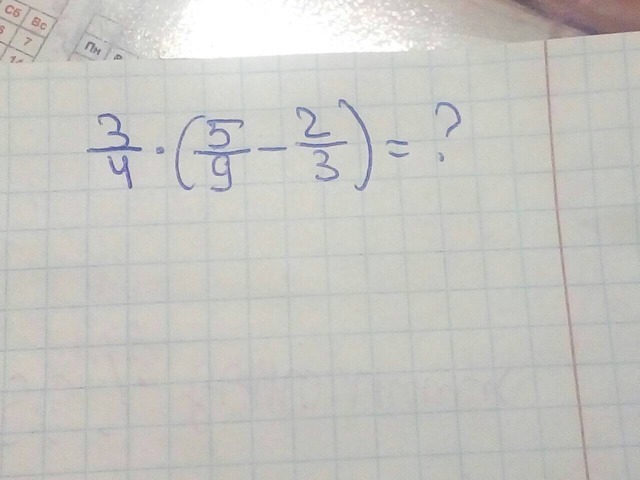 Сб Вс
7
Пн
3/4 · (5/9 - 2/3) = ?